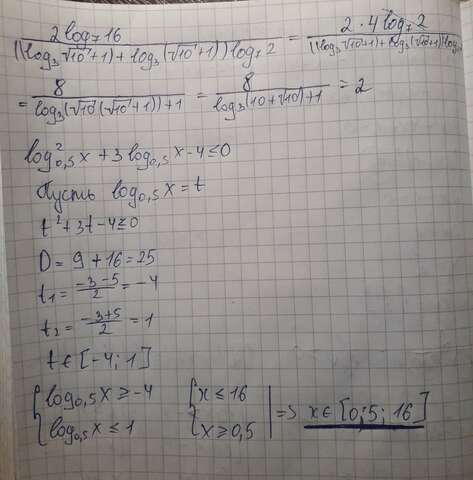 2log₇16 / ((log₃√10+1) + log₃(√10+1)) log₇2 = 2·4log₇2 / ((log₃√10+1)+log₃(√10+1)) log₇
= 8 / log₃(√10(√10+1))+1 = 8 / log₃(10+√10)+1 = 2
log²₀,₅x + 3log₀,₅x - 4 ≤ 0
Пусть log₀,₅x = t
t² + 3t - 4 ≤ 0
D = 9 + 16 = 25
t₁ = (-3-5)/2 = -4
t₂ = (-3+5)/2 = 1
t ∈ [-4; 1]
{log₀,₅x ≥ -4 {x ≤ 16
{log₀,₅x ≤ 1 {x ≥ 0,5 => x ∈ [0;5; 16]